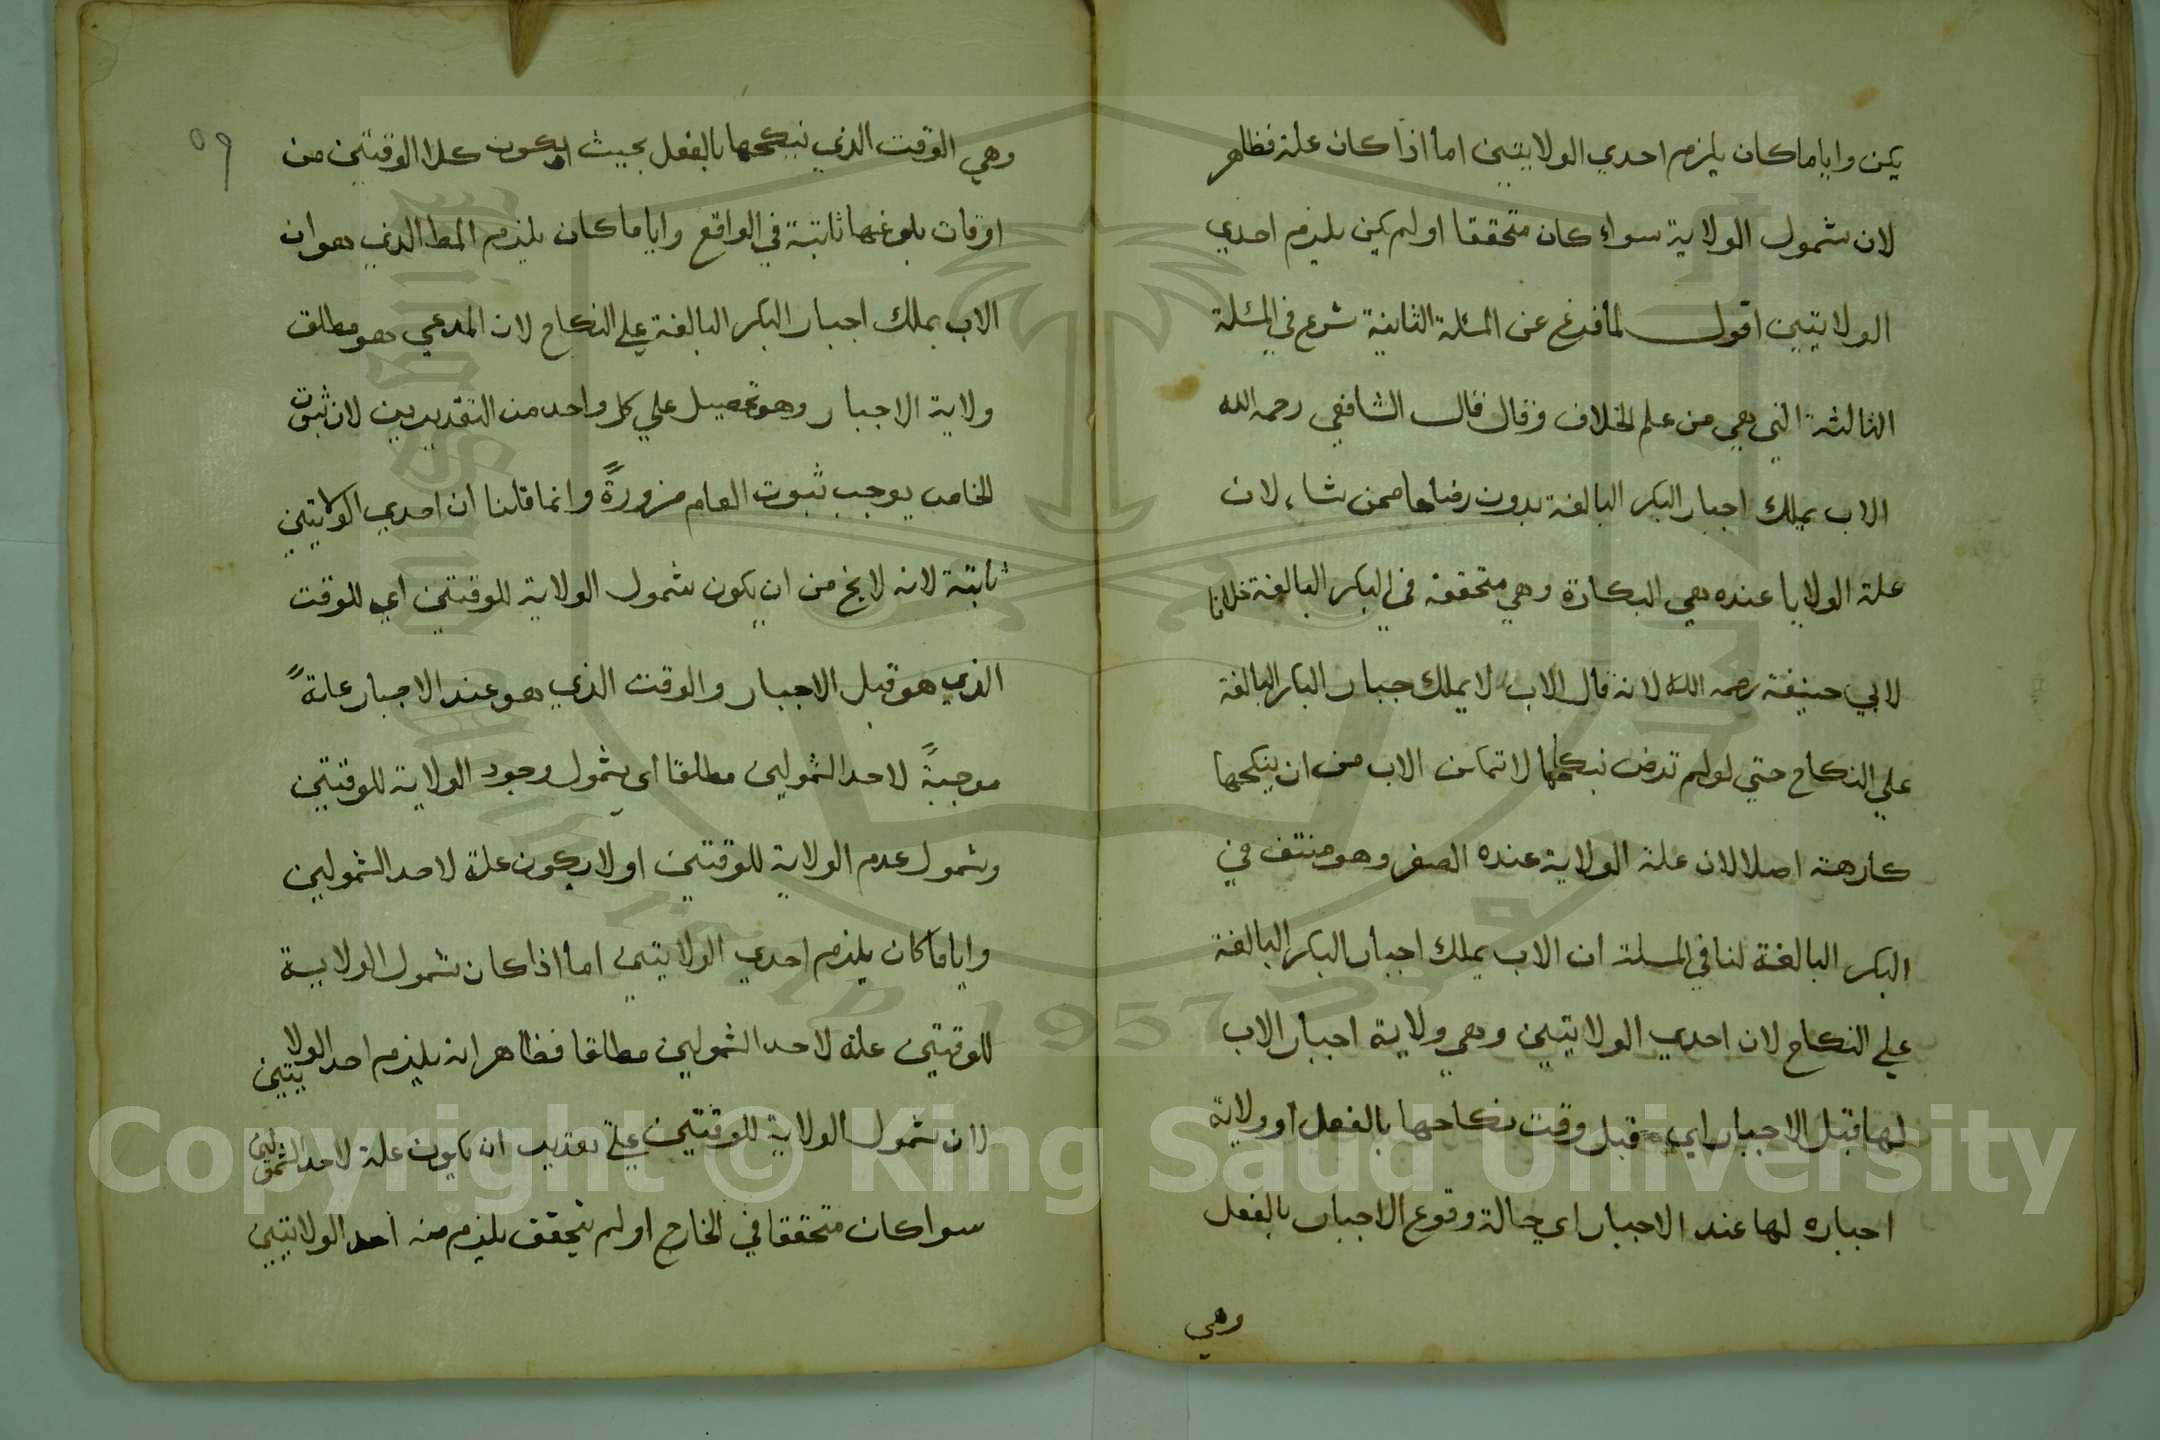 يكن واياما كان يلزم احدي الولايتين اما اذا كان علة فظاهر
لان شمول الولاية سواء كان متحققا اولم يكن يلزم احدي
الولايتين اقول لما فرغ عن المسئلة الثانية شرع في المسئلة
الثالثة التي هي من علم الخلاف وقال قال الشافعي رحمه الله
الاب يملك اجبار البكر البالغة بدون رضاها ممن شاء لان
علة الولايا عنده هي البكارة وهي متحققة في البكر البالغة خلافا
لابي حنيفة رحمه الله لانه قال الاب لا يملك جبار البكر البالغة
علي النكاح حتي لولم ترض نبكاحها لا تمكن الاب من ان ينكحها
كارهة اصلا لان علة الولاية عنده الصغر وهو منتف في
البكر البالغة لنا في المسلة ان الاب يملك اجبار البكر البالغة
علي النكاح لان احدي الولايتين وهي ولاية اجبار الاب
لها قبل الاجبار اي قبل وقت نكاحها بالفعل او ولاية
اجباره لها عند الاجبار اي حالة وقوع الاجبار بالفعل
وهي
٥٩
وهي الوقت الذي نيكحها بالفعل بحيث يكون كلا الوقتين من
اوقات بلوغها ثابتة في الواقع واياما كان يلزم المط الذي هوان
الاب يملك اجبار البكر البالغة علي النكاح لان المدعي هو مطلق
ولاية الاجبار وهو تحصيل علي كل واحد من التقديرين لان ثبوت
الخاص يوجب ثبوت العام ضرورةً وانما قلنا ان احدي الولايتين
ثابتة لانه لا يخ من ان يكون شمول الولاية للوقتين اي للوقت
الذي هو قبل الاجبار والوقت الذي هو عند الاجبار علةً
موجبةً لاحد الشمولين مطلقا اي شمول وجود الولاية للوقتين
وشمول عدم الولاية للوقتين اولا يكون علة لاحد الشمولين
واياما كان يلزم احدي الولايتين اما اذا كان شمول الولاية
للوقتين علة لاحد الشمولين مطلقا فظاهر انه يلزم احد الولايتين
لان شمول الولاية للوقتين علي تقدير ان يكون علة لاحد الشمولين
سوا كان متحققا في الخارج اولم يتحقق يلزم منه احد الولايتين
Copyright © King Saud University
1957